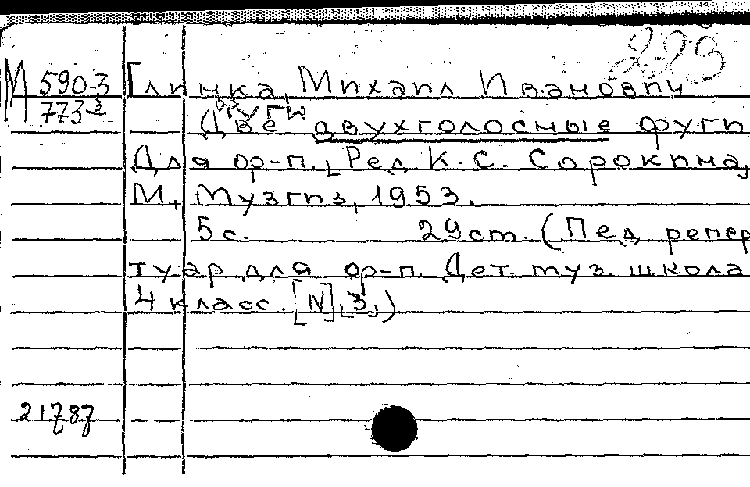 223
М 590-3 Глинка, Михаил Иванович
773
Две двухголосные фуги
Для ф-п., Ред. К. С. Сорокина,
М., Музгиз, 1953.
5 с. 29 cm. (Пед. репер
туар для ф-п. Дет. муз. школа
4 класс. [N] 3,)
21787